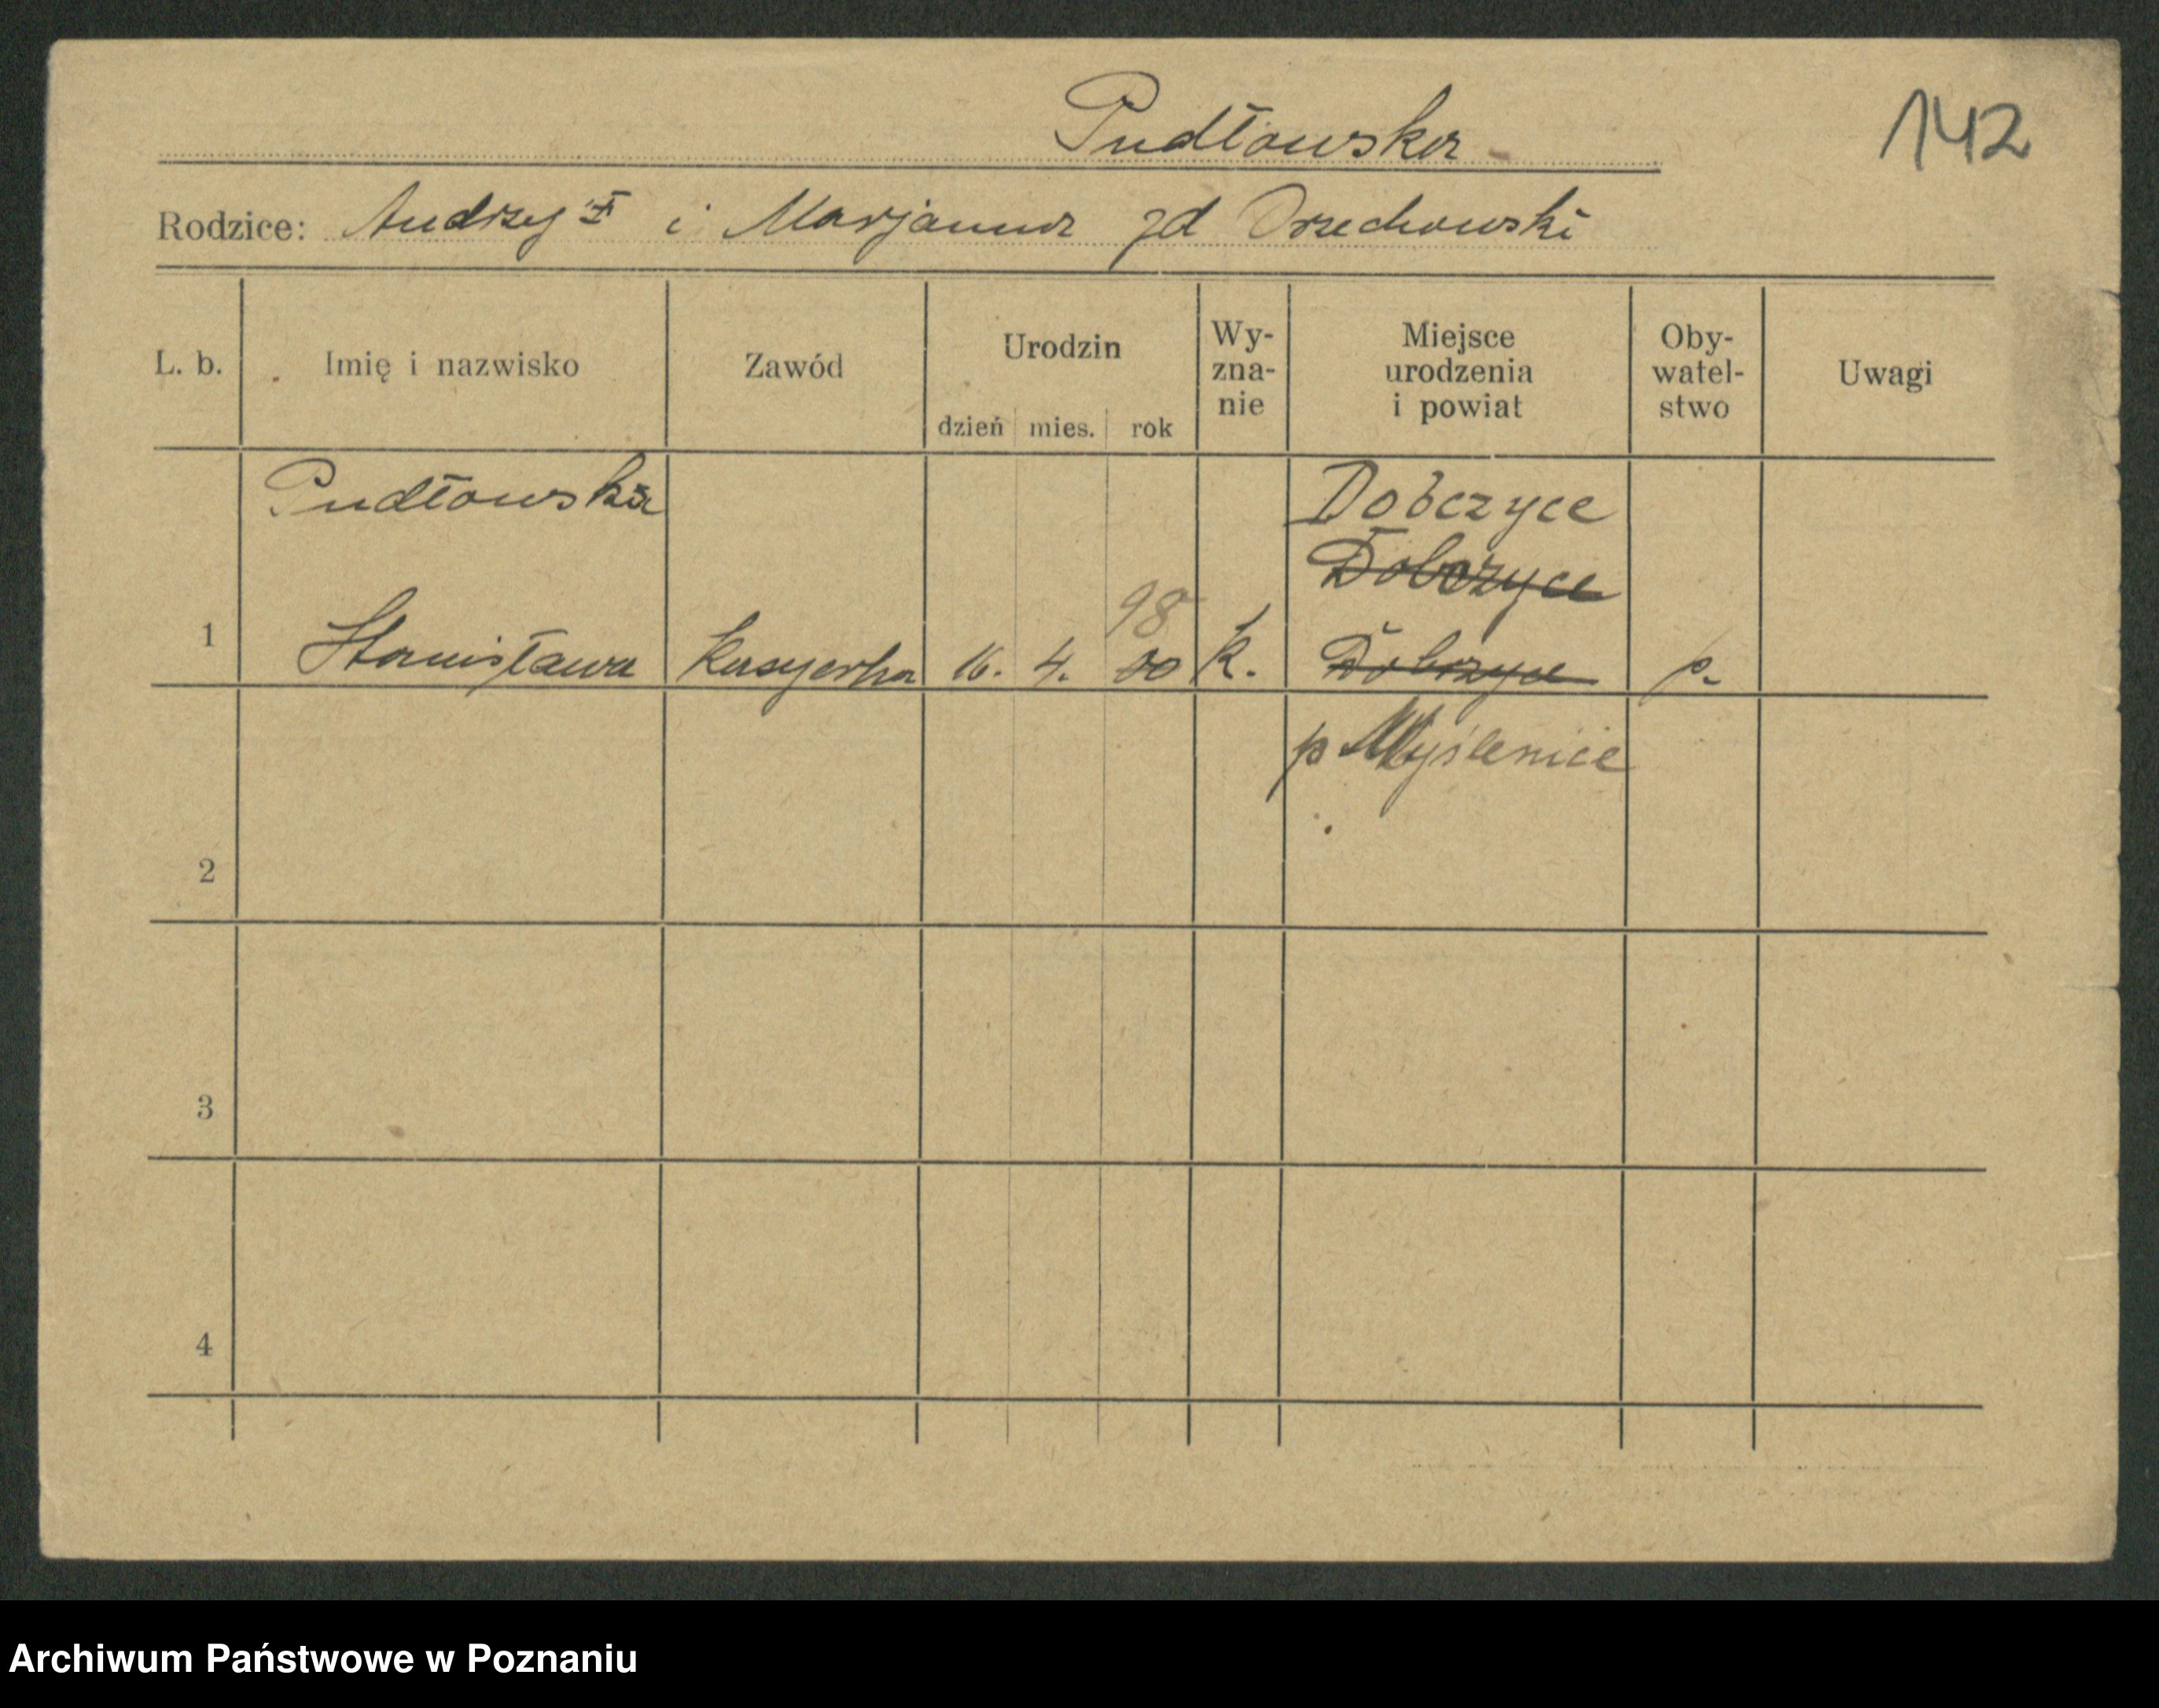 Pudłowska
142
Rodzice: Andrzej i Marjanna zd Orzechowski
L. b. Imię i nazwisko Zawód Urodzin dzień mies. rok Wy-zna-nie Miejsce urodzenia i powiat Oby-watel-stwo Uwagi
Pudłowska Dobczyce
Dobczyce
98
1 Stanisława Kasyerka 16. 4. 00 k. Dobczyce p.
p Myślenice
2
3
4
Archiwum Państwowe w Poznaniu